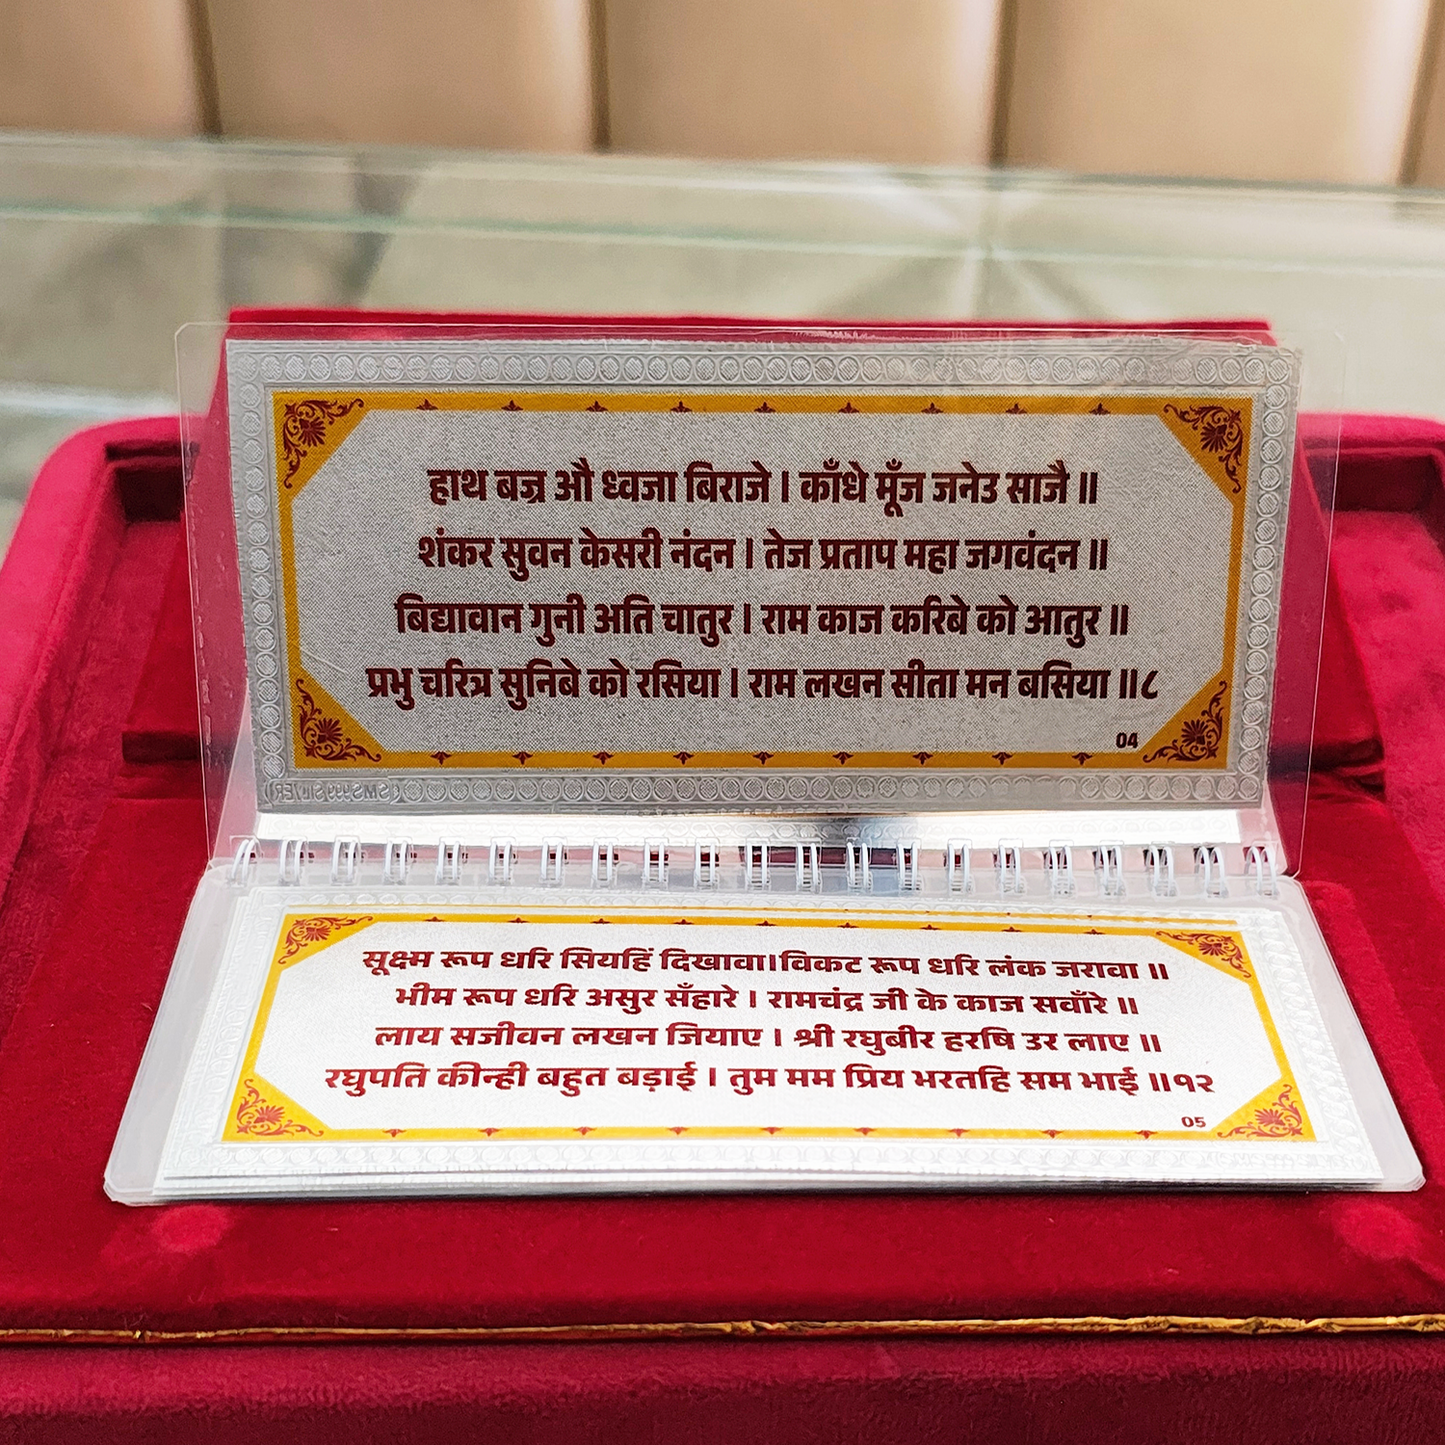 हाथ बज्र औ ध्वजा बिराजे । काँधे मूँज जनेउ साजै ॥
शंकर सुवन केसरी नंदन । तेज प्रताप महा जगवंदन ॥
बिद्यावान गुनी अति चातुर । राम काज करिबे को आतुर ॥
प्रभु चरित्र सुनिबे को रसिया । राम लखन सीता मन बसिया ॥८
04
सूक्ष्म रूप धरि सियहिं दिखावा।विकट रूप धरि लंक जरावा ॥
भीम रूप धरि असुर सँहारे । रामचंद्र जी के काज सवाँरे ॥
लाय सजीवन लखन जियाए । श्री रघुबीर हरषि उर लाए ॥
रघुपति कीन्ही बहुत बड़ाई । तुम मम प्रिय भरतहि सम भाई ॥१२
05